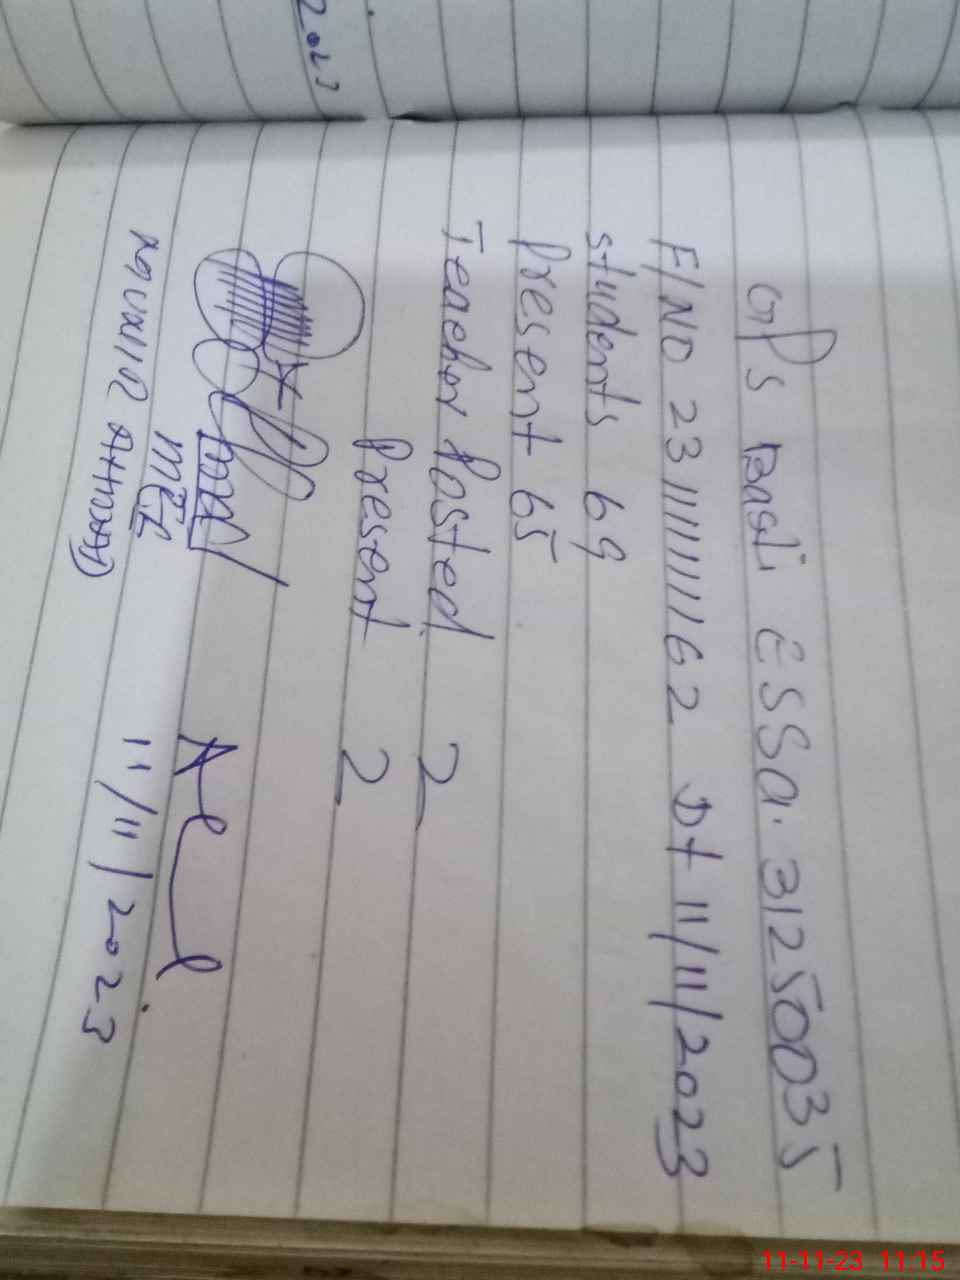 GPS Basti ESSa. 31250035
F/NO 231111111162 Dt 11/11/2023
Students 69
Present 65
Teacher Posted. 2
Present 2
MEL
11/11/2023
2023
11-11-23 11:15